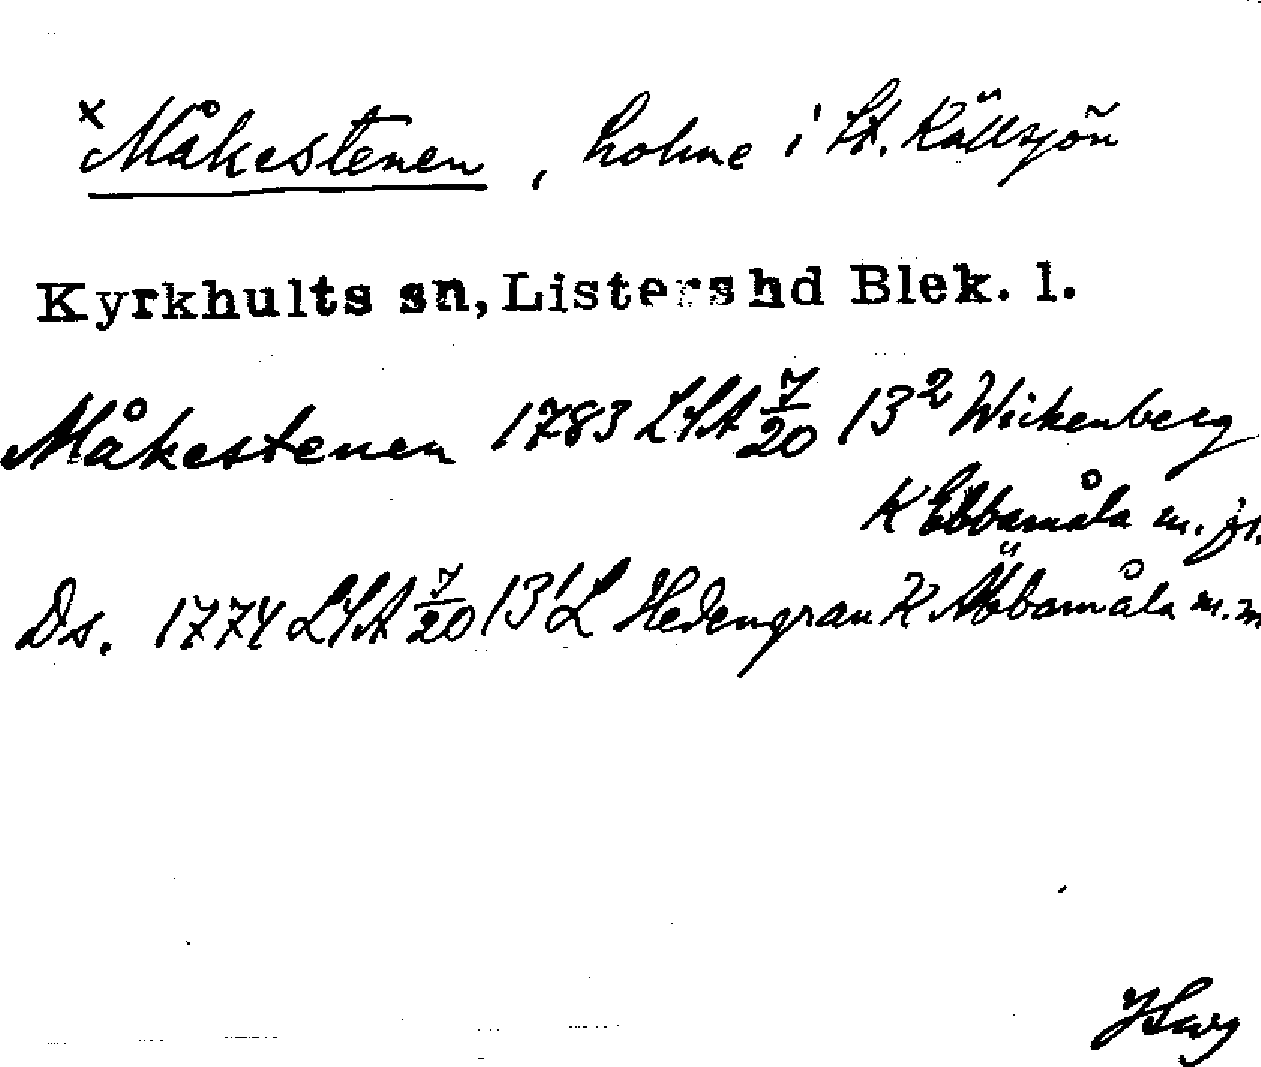 x Måkestenen, holme i St. Källsjön
Kyrkhults sn, Listers hd Blek. l.
Måkestenen 1783 LSA 7/20 13² Wickenberg
K Ebbamåla m. fl.
Ds. 1774 LSA 7/20 13¹ L Hedengran K Äbbamåla m.m